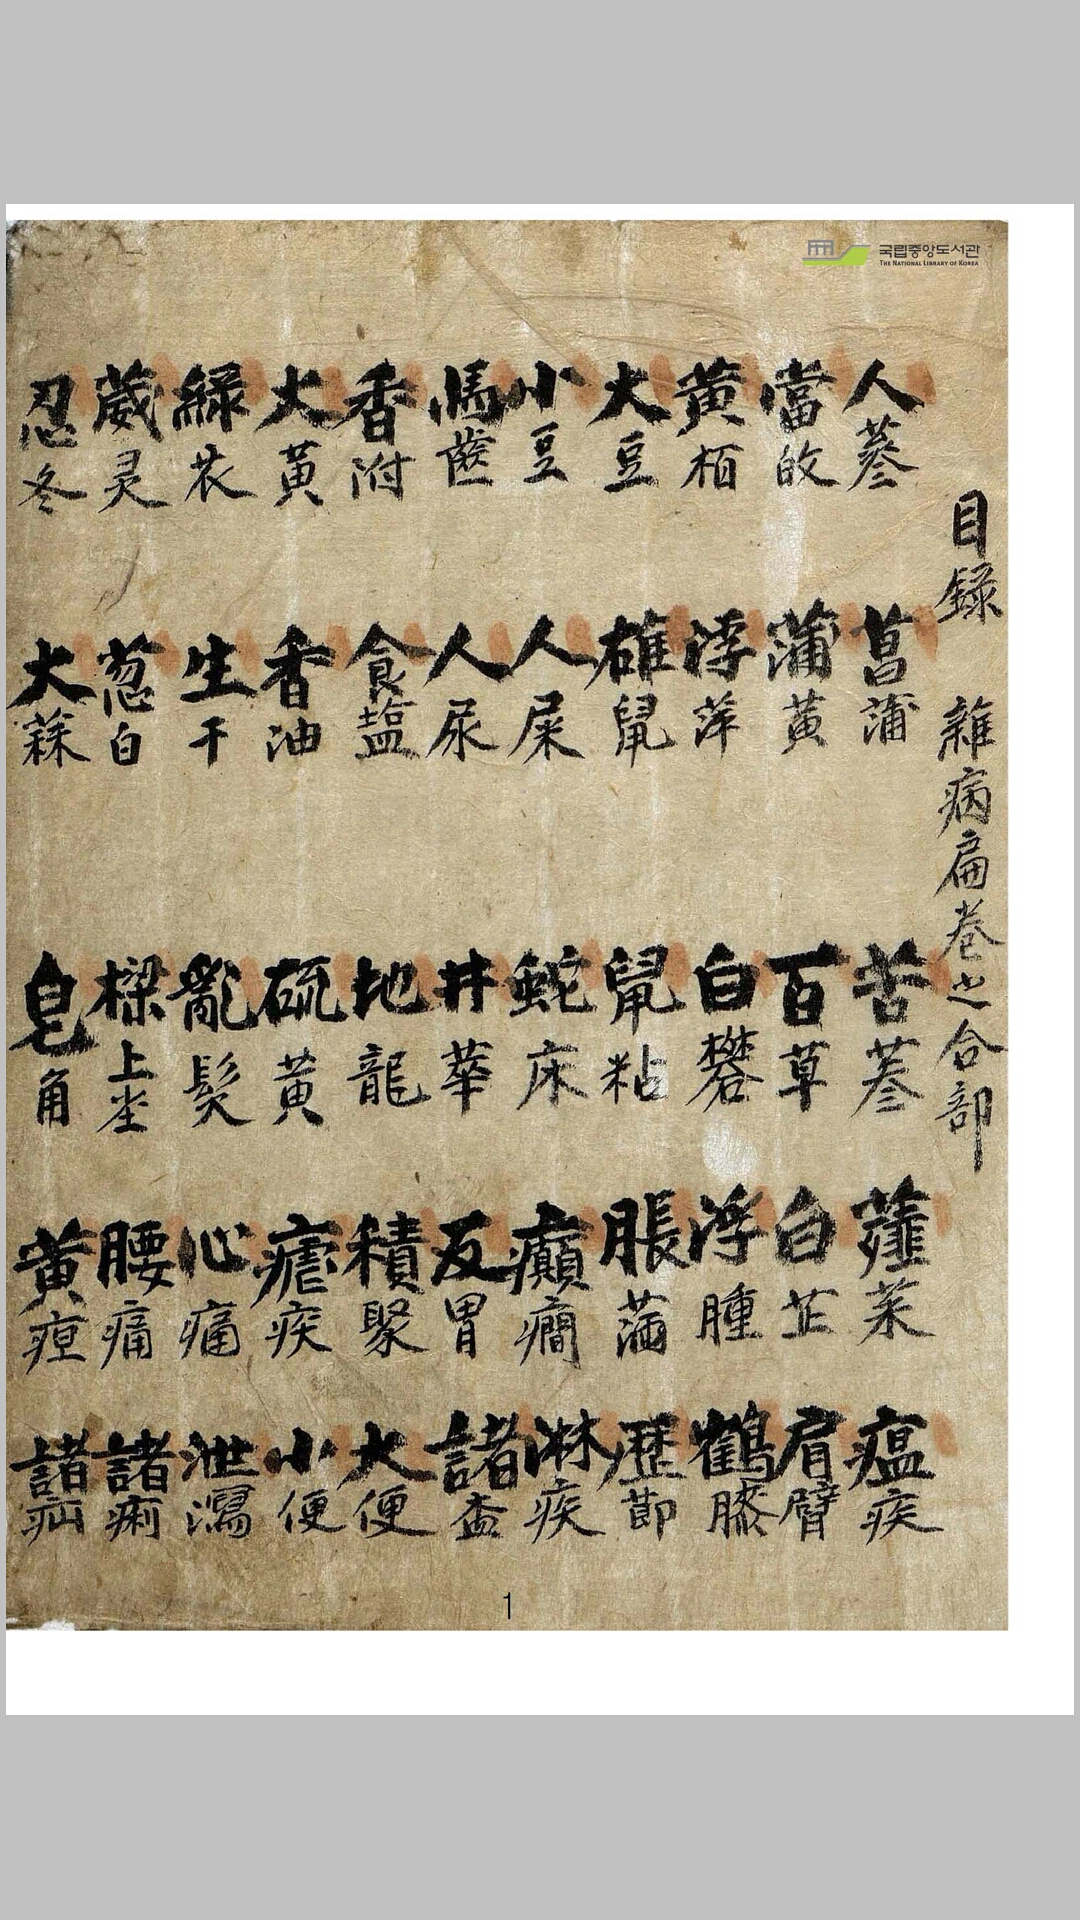 국립중앙도서관
THE NATIONAL LIBRARY OF KOREA
目錄 雜病扁卷之合部
人蔘 菖蒲 苦蔘 薤菜 瘟疾
當皈 蒲黃 百草 白芷 肩臂
黃栢 浮萍 白礬 浮腫 鶴膝
大豆 雄鼠 鼠粘 脹滿 歷節
小豆 人屎 蛇床 癲癎 淋疾
馬齒 人尿 井華 反胃 諸蛊
香附 食盐 地龍 積聚 大便
大黃 香油 硫黃 瘧疾 小便
綠衣 生干 亂髮 心痛 泄瀉
葳灵 葱白 樑上坐 腰痛 諸痢
忍冬 大蒜 皂角 黃疸 諸疝
1